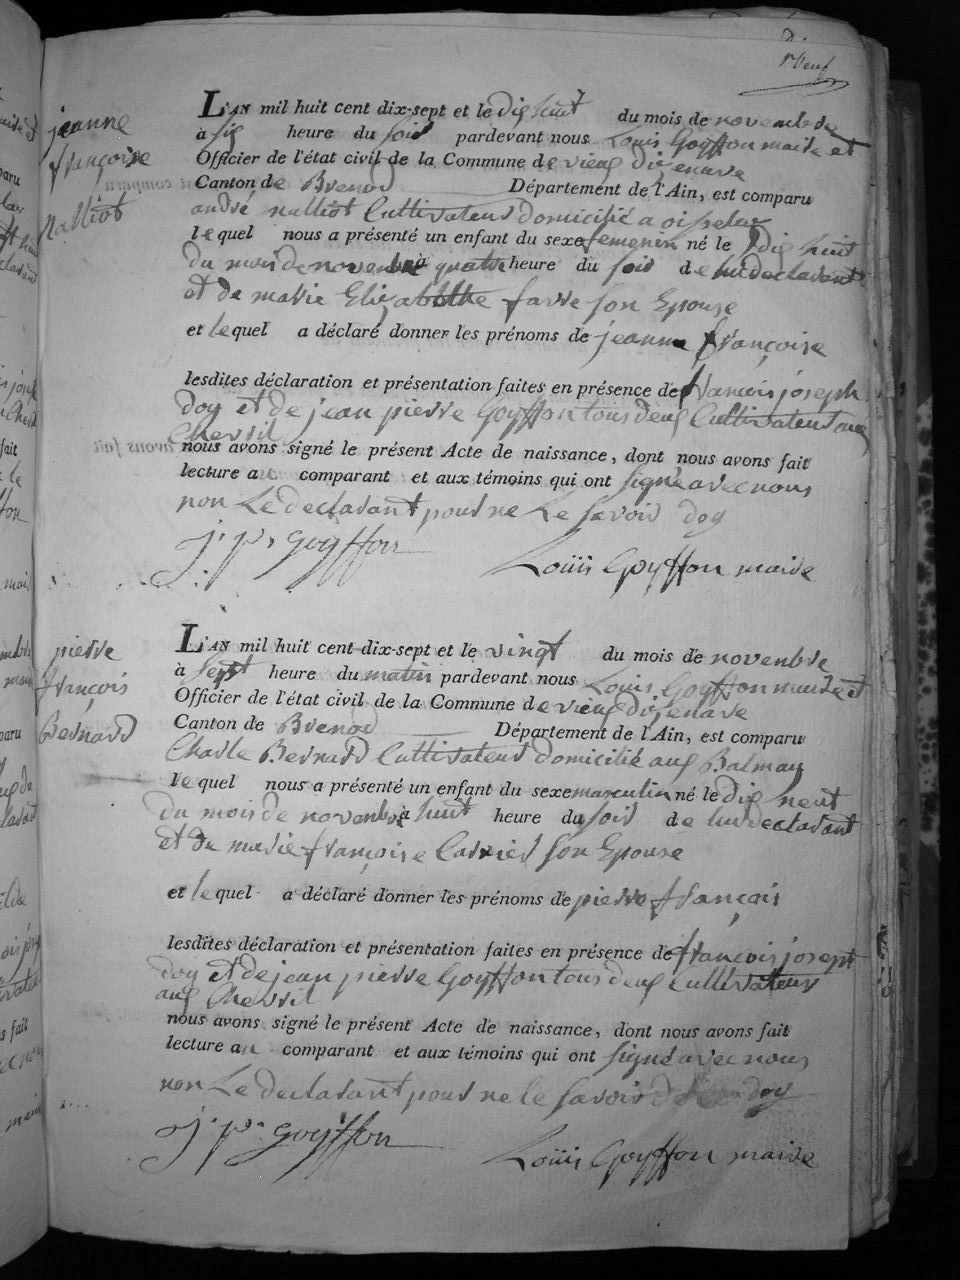 jeanne
françoise
Nalliot
L'AN mil huit cent dix-sept et le dix huit du mois de novembre
à six heure du soir pardevant nous Louis Goyffon maire et
Officier de l'état civil de la Commune de vieux dizenave
Canton de Brenod Département de l'Ain, est comparu
andré nalliot Cultivateur domicilié a oisselaz
lequel nous a présenté un enfant du sexe femenin né le dix huit
du mois de novembre à quatre heure du soir de lui declarant
et de marie Elizabethe farre son Epouse
et lequel a déclaré donner les prénoms de jeanne françoise
lesdites déclaration et présentation faites en présence de francois joseph
doy et de jean pierre Goyffon tous deux Cultivateur aux
Chevril
nous avons signé le présent Acte de naissance, dont nous avons fait
lecture au comparant et aux témoins qui ont signé avec nous
non Le declarant pour ne Le savoir doy
j. p. Goyffon Louis Goyffon maire
pierre
françois
Bernard
L'AN mil huit cent dix-sept et le vingt du mois de novenbre
à sept heure du matin pardevant nous Louis Goyffon maire et
Officier de l'état civil de la Commune de vieux dizenave
Canton de Brenod Département de l'Ain, est comparu
Charle Bernard Cultivateur domicilié aux Balmay
lequel nous a présenté un enfant du sexe masculin né le dix neuf
du mois de novenbre à huit heure du soir de lui declarant
et de marie françoise Carrier son Epouse
et lequel a déclaré donner les prénoms de pierre françois
lesdites déclaration et présentation faites en présence de françois josept
doy et de jean pierre Goyffon tous deux Cultivateur
aux Chevril
nous avons signé le présent Acte de naissance, dont nous avons fait
lecture au comparant et aux témoins qui ont signé avec nous
non Le declarant pour ne le savoir doy
j. p. Goyffon Louis Goyffon maire